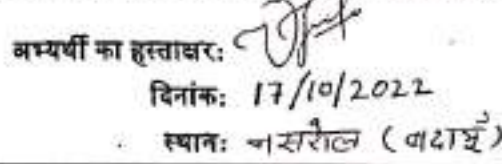 अभ्यर्थी का हस्ताक्षर:
दिनांक: 17/10/2022
स्थान: नसरौल (बदायूँ)